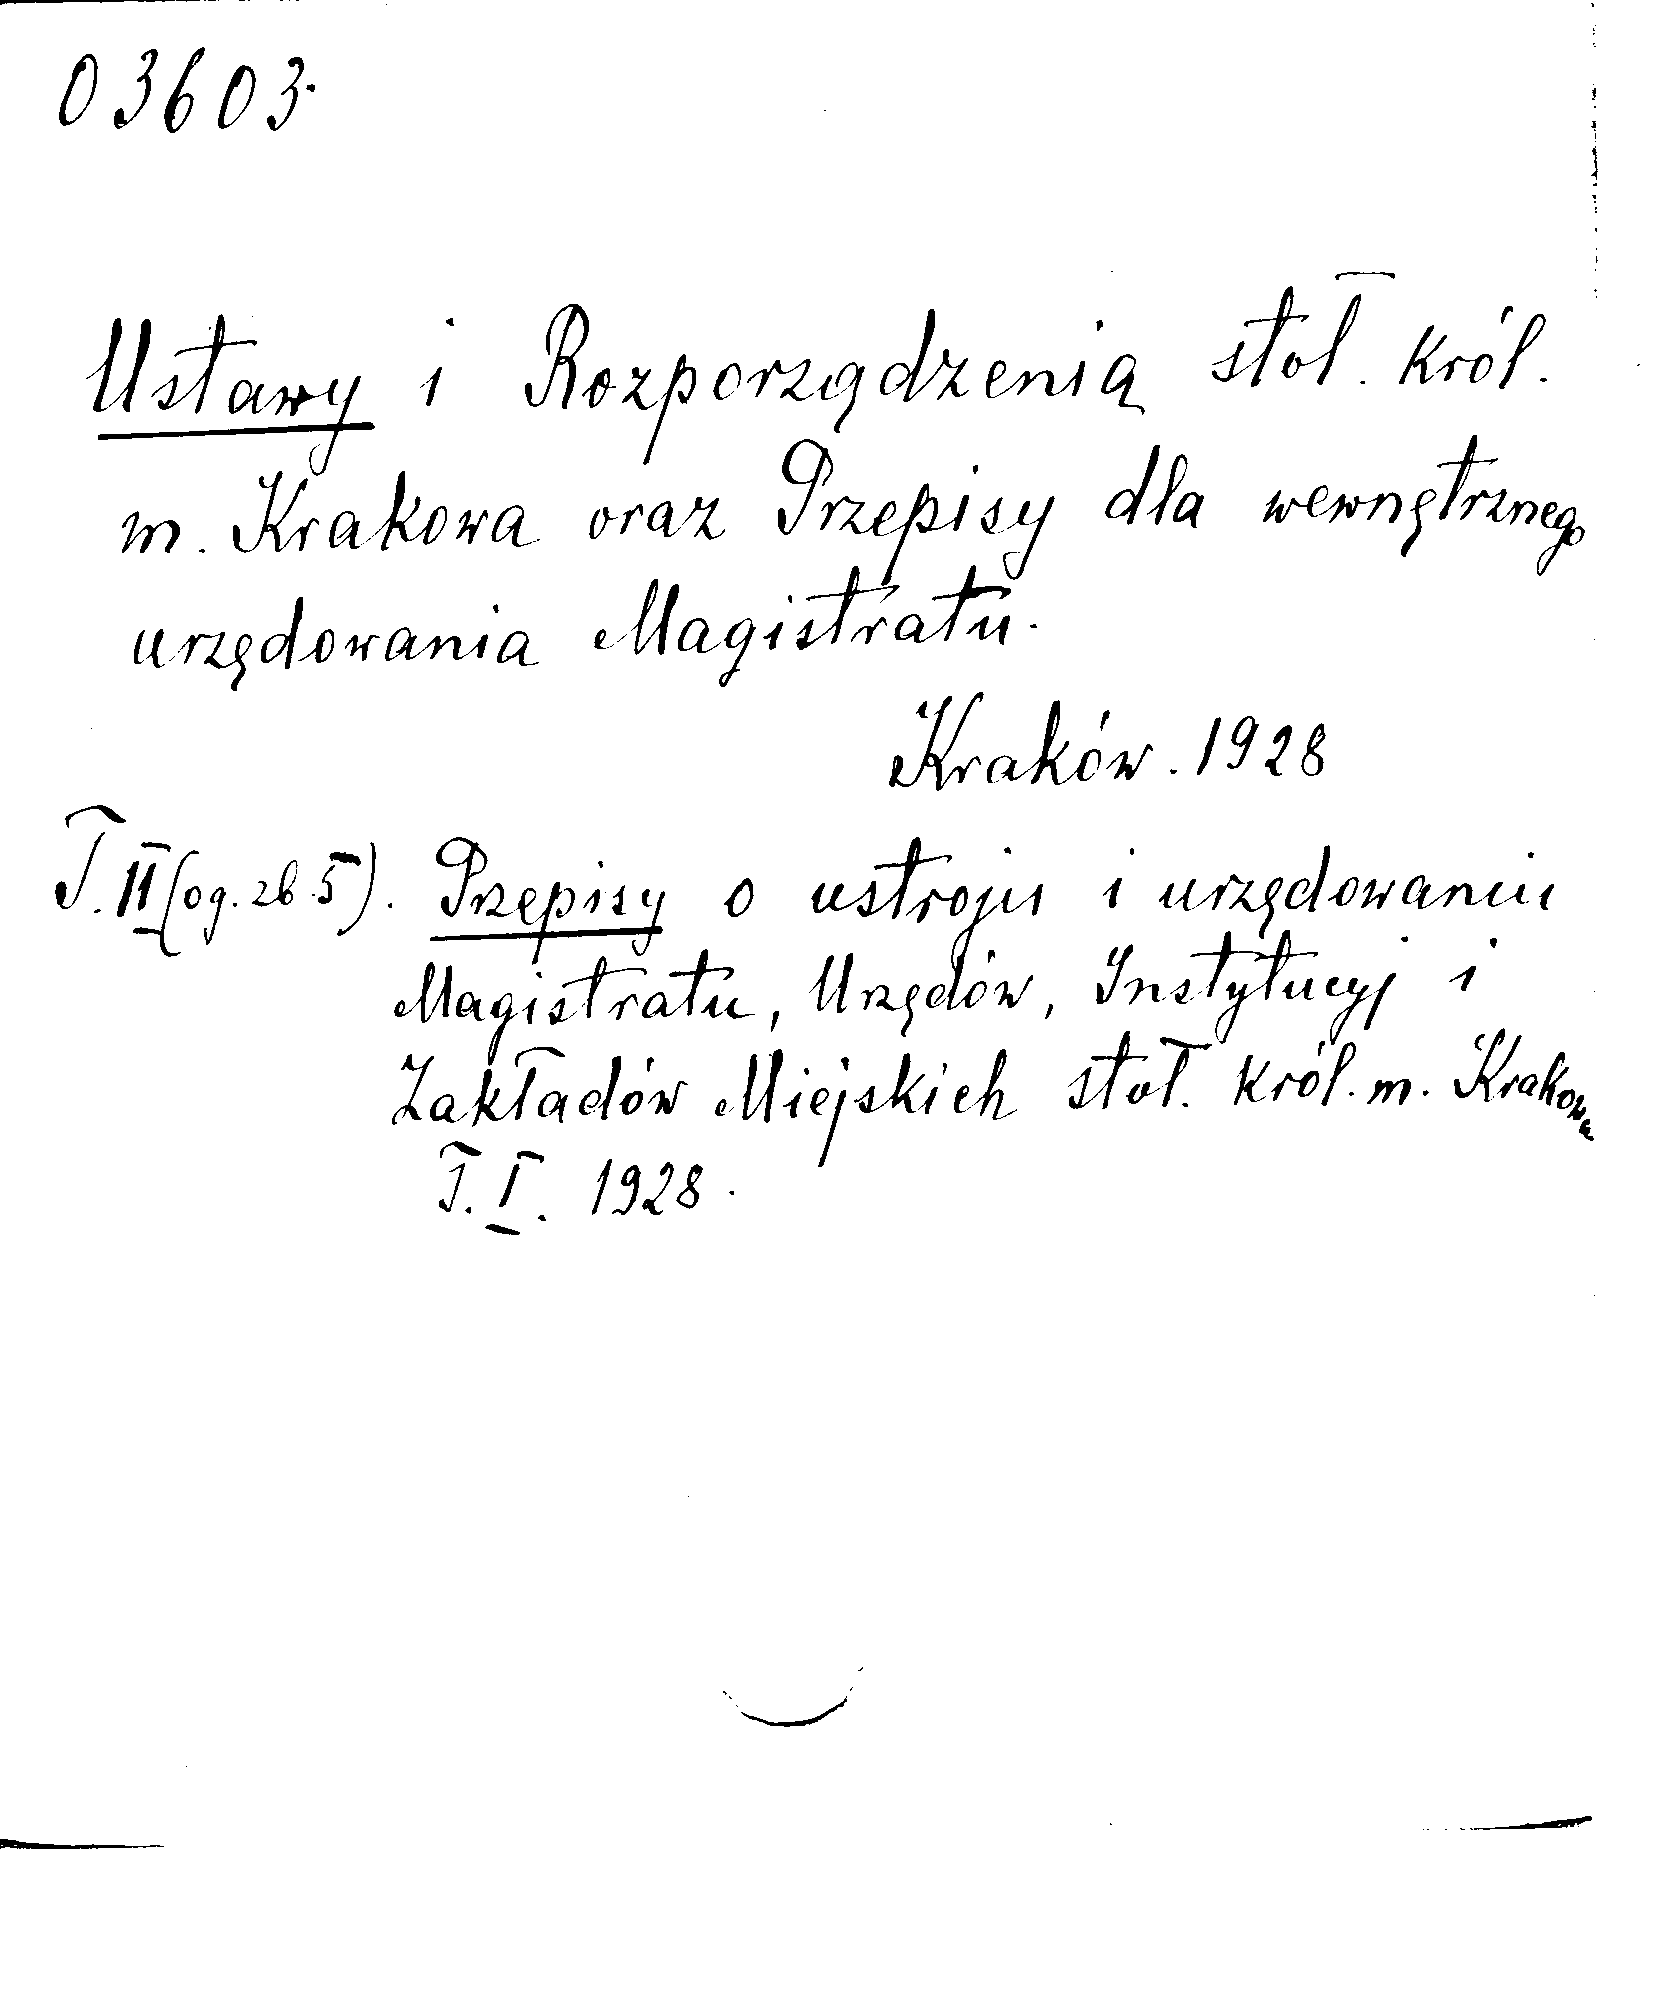 03603.
Ustawy i Rozporządzenią stoł. król.
m. Krakowa oraz Przepisy dla wewnętrznego
urzędowania Magistratu.
Kraków. 1928
T. II (og. zb. 5). Przepisy o ustroju i urzędowaniu
Magistratu, Urzędów, Instytucyj i
Zakładów Miejskich stoł. król. m. Krakowa
T. I. 1928.